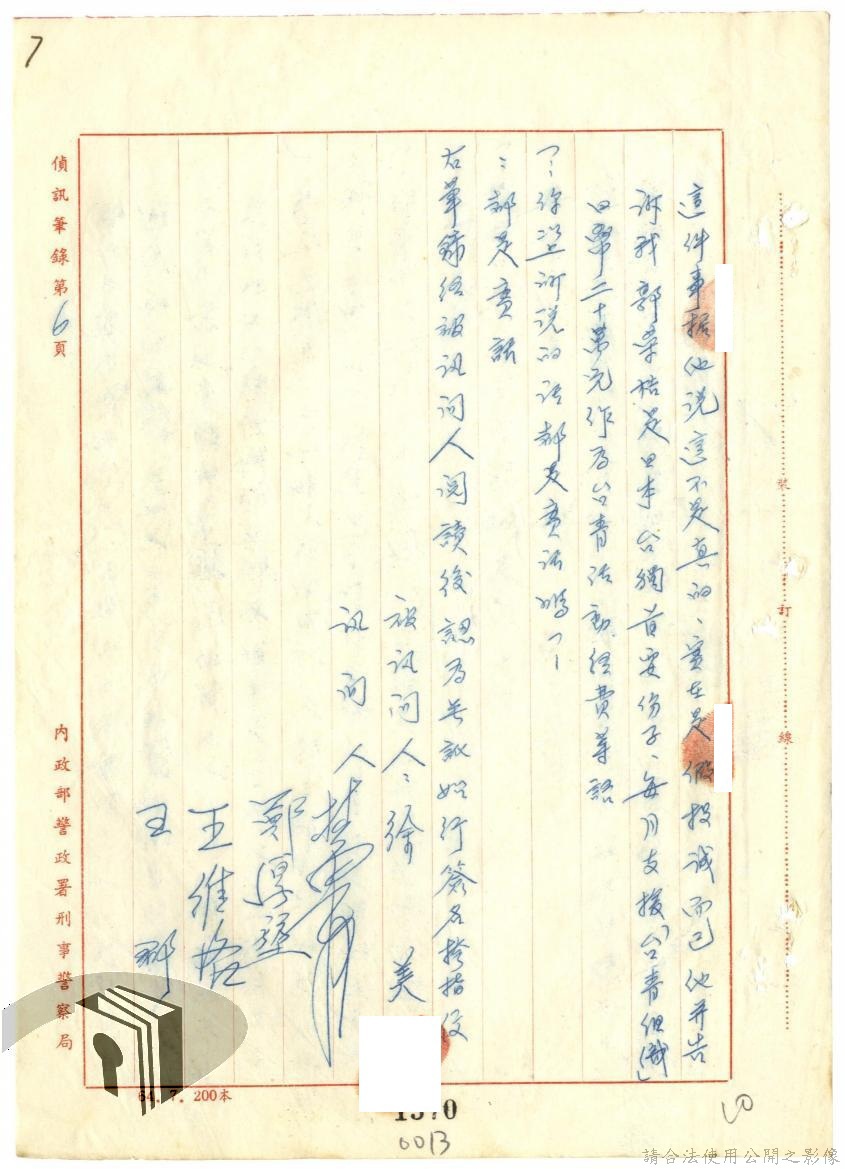 7
這件事據他說這不是真的、實在是假投誠而已他并告
訴我郭榮桔是日本台獨首要份子、每月支援「台青組織」
日幣二十萬元作為台青活動經費等語
問：你以上所說的話都是實話嗎？
：都是實話
右筆錄經被訊問人閱讀後認為無訛始行簽名捺指役
被訊問人：徐 美
訊問人
王維
王
偵訊筆錄第6頁
內政部警政署刑事警察局
裝訂線
64.7.200本
1370
0013
請合法使用公開之影像